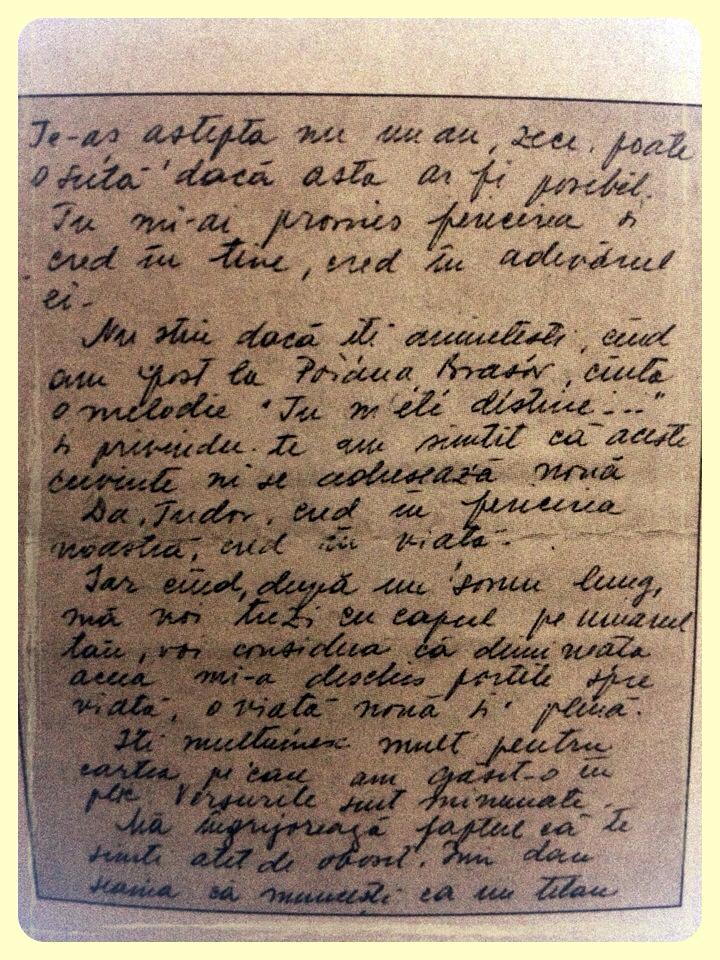 Te-aș aștepta nu un an, zece, poate
o sută dacă asta ar fi posibil.
Tu mi-ai promis fericirea și
cred în tine, cred în adevărul
ei.
Nu știu dacă îți amintești, cînd
am fost la Poiana Brașov, cînta
o melodie "Tu m'éti destiné..."
și privindu-te am simțit că aceste
cuvinte ni se adresează nouă
Da, Tudor, cred în fericirea
noastră, cred în viață.
Iar cînd, după un somn lung,
mă voi trezi cu capul pe umărul
tău, voi considera că dimineața
aceea mi-a deschis porțile spre
viață, o viață nouă și plină.
Îți mulțumesc mult pentru
cartea pe care am găsit-o în
plic Versurile sunt minunate.
Mă îngrijorează faptul că te
simți atît de obosit. Îmi dau
seama că muncești ca un titan